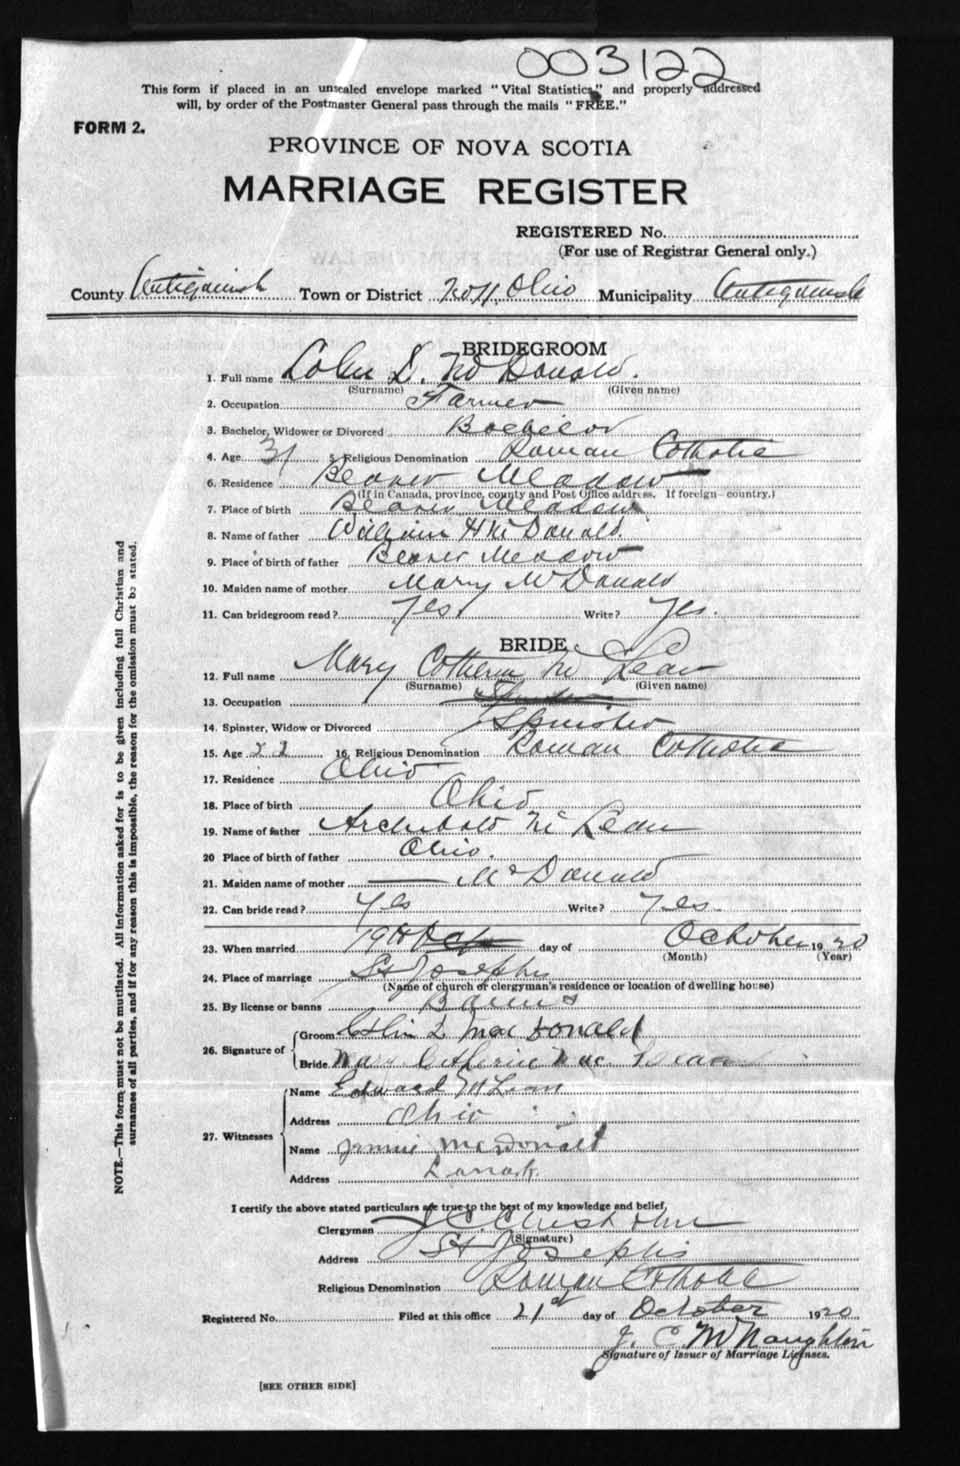 003122
This form if placed in an unsealed envelope marked "Vital Statistics," and properly addressed
will, by order of the Postmaster General pass through the mails "FREE."
FORM 2.
PROVINCE OF NOVA SCOTIA
MARRIAGE REGISTER
REGISTERED No.
(For use of Registrar General only.)
County Antigonish Town or District No 11. Ohio Municipality Antigonish
BRIDEGROOM
1. Full name Colin D. McDonald.
(Surname) (Given name)
2. Occupation Farmer
3. Bachelor, Widower or Divorced Bachelor
4. Age 31 5. Religious Denomination Roman Catholic
6. Residence Beaver Meadow
(If in Canada, province, county and Post Office address. If foreign—country.)
7. Place of birth Beaver Meadow
8. Name of father William H McDonald.
9. Place of birth of father Beaver Meadow
10. Maiden name of mother Mary McDonald
11. Can bridegroom read? Yes. Write? Yes.
BRIDE
12. Full name Mary Catherine McLean
(Surname) (Given name)
13. Occupation
14. Spinster, Widow or Divorced Spinster
15. Age 16. Religious Denomination Roman Catholic
17. Residence Ohio
18. Place of birth Ohio
19. Name of father Archibald McLean
20 Place of birth of father Ohio.
21. Maiden name of mother —— McDonald
22. Can bride read? Yes Write? Yes
23. When married 19th day of October 1920
(Month) (Year)
24. Place of marriage St Josephs
(Name of church or clergyman's residence or location of dwelling house)
25. By license or banns Banns
26. Signature of
Groom Colin D MacDonald
Bride Mary Catherine MacLean
27. Witnesses
Name Edward McLean
Address Ohio
Name Jennie McDonald
Address Lanark.
I certify the above stated particulars are true to the best of my knowledge and belief,
Clergyman J C Chisholm
(Signature)
Address St Josephs
Religious Denomination Roman Catholic
Registered No. Filed at this office 21st day of October 1920
J. C. McNaughton
Signature of Issuer of Marriage Licenses.
[SEE OTHER SIDE]
NOTE.—This form must not be mutilated. All information asked for is to be given including full Christian and
surnames of all parties, and if for any reason this is impossible, the reason for the omission must be stated.